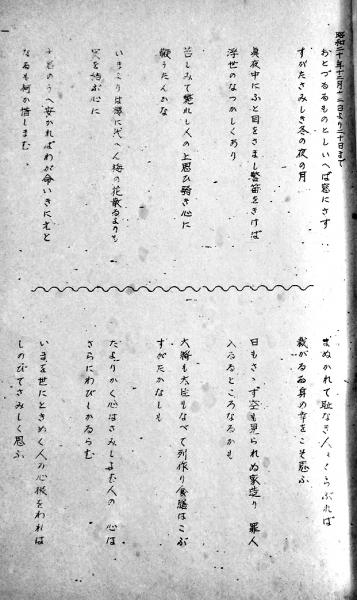 昭和二十年十二月十二日より二十日まで
おとづるるものとしいへば窓にさす
すがたさみしき冬の夜の月
真夜中にふと目をさまし警笛をきけば
浮世のなつかしくあり
苦しみて斃れし人の上思ひ騒ぎ心に
うたんかな
いまよりは櫻に代へん梅の花散るよりも
実を結ぶ心に
のうへ安かればわが命いきに
なるも何か惜しまむ
まぬかれて恥なき人とくらぶれば
裁がるる身の幸をこそ思ふ
日もさゝず空も見られぬ家造り 罪人
入るるところなるかも
大将も大臣もなべて列作り食膳はこぶ
すがたかなしも
たよりかく心はさみしよむ人の 心は
さらにわびしかるらむ
いまを世にときめく人の心根をわれは
しのびてさみしく思ふ